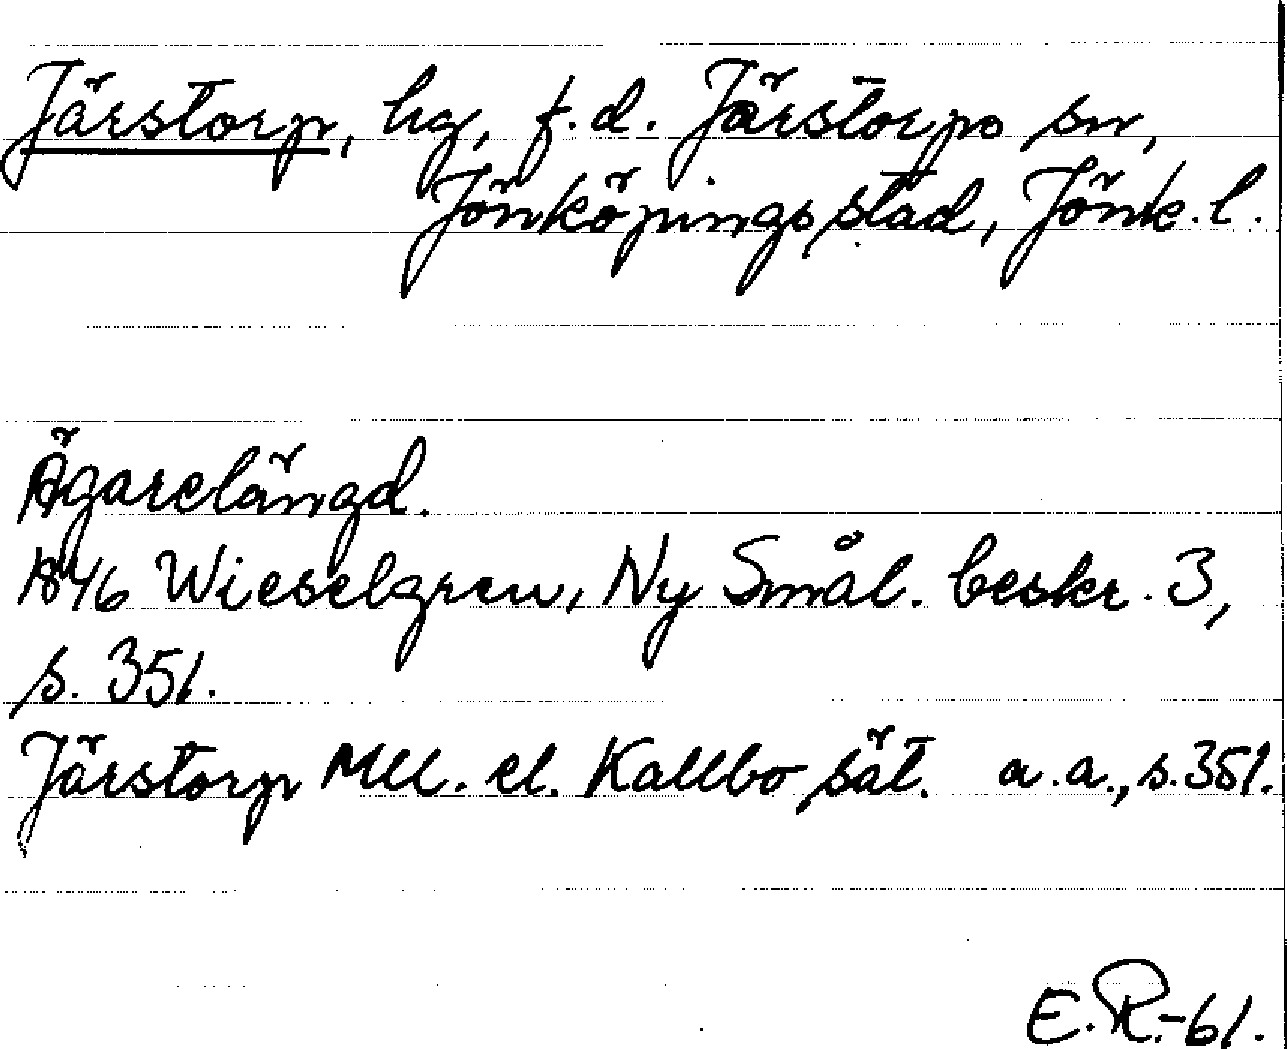 Järstorp, hg, f.d. Järstorps sn,
Jönköpings stad, Jönk. l.
Ägarelängd.
1846 Wieselgren, Ny Smål. beskr. 3,
s. 351.
Järstorp Mll. el. Kallbo sät. a.a., s. 351.
E.R.-61.